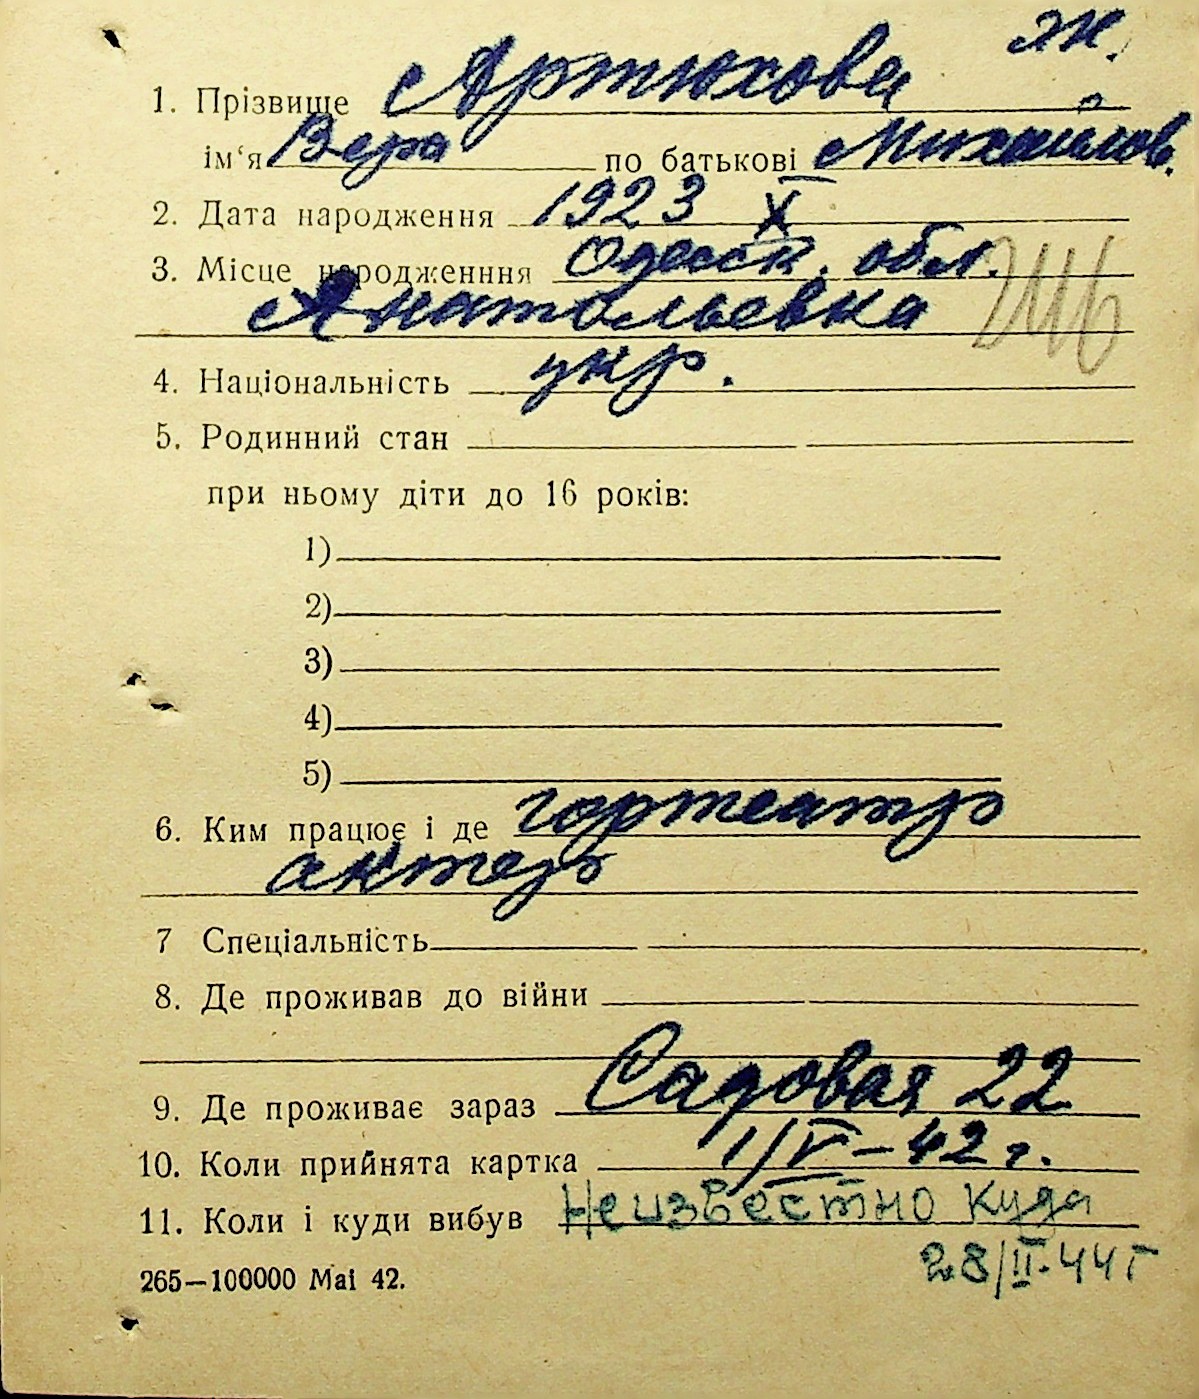 ж.
1. Прізвище Артюхова
ім‘я Вера по батькові Михайлов.
2. Дата народження 1923 X
3. Місце народженння Одесск. обл.
Анатольевка
4. Національність укр.
5. Родинний стан
при ньому діти до 16 років:
1)
2)
3)
4)
5)
6. Ким працює і де гортеатр
актер
7 Спеціальність
8. Де проживав до війни
9. Де проживає зараз Садовая 22
10. Коли прийнята картка 1/V–42 г.
11. Коли і куди вибув Неизвестно куда
28/II-44 г
265—100000 Mai 42.